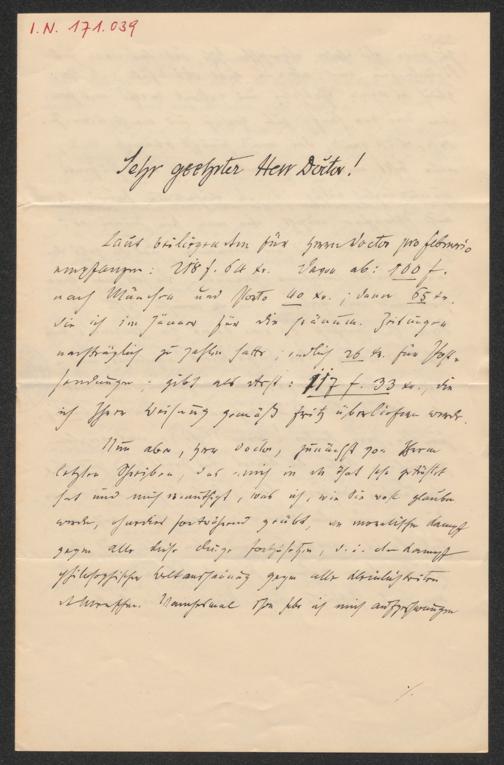 I.N. 171.039
Sehr geehrter Herr Doctor!
Laut beiliegendem für Herrn Doctor pro Februario
empfangen: 218 f. 64 kr. Davon ab: 100 f.
nach München und Porto 40 kr.; dann 65 kr.
die ich im Jänner für die pränum. Zeitungen
nachträglich zu zahlen hatte; endlich 26 kr. für Post-
sendungen: gibt als Rest: 117 f. 33 kr., die
ich Ihrer Weisung gemäß Fritz überliefern werde.
Nun aber, Herr Doctor, zunächst von Ihrem
letzten Schreiben, das mich in der That sehr getröstet
hat und mich, was ich, wie Sie wohl glauben
werden, ohnedies fortwährend geübt, den moralischen Kampf
gegen alle diese Dinge fortzusetzen, d. i. den Kampf
philosophischer Weltanschauung gegen alle Kleinlichkeiten
Manchesmal schon habe ich mich aufgeschwungen
./.